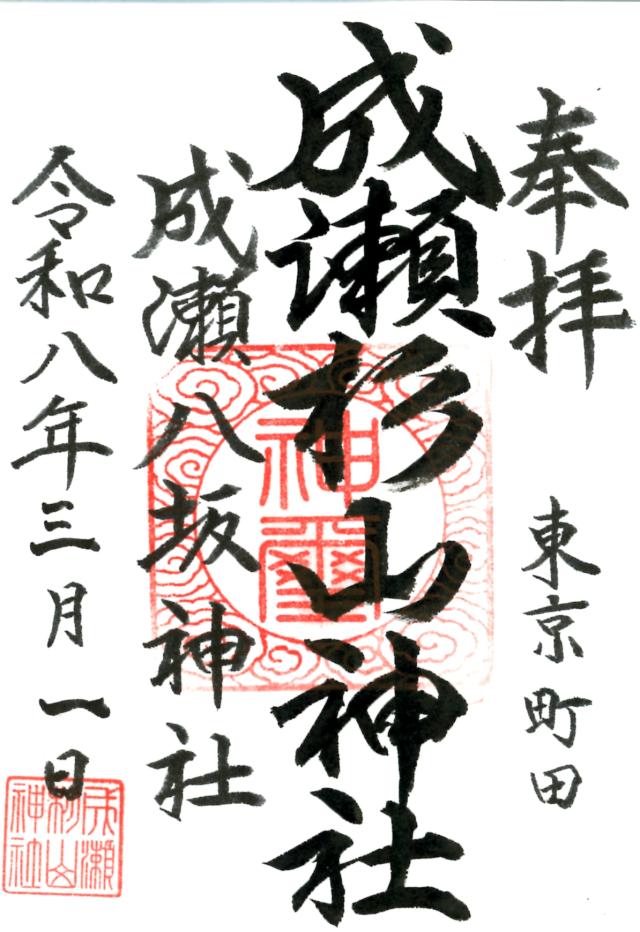 奉拝
東京町田
成瀬杉山神社
神璽
成瀬八坂神社
令和八年三月一日
成瀬
杉山
神社